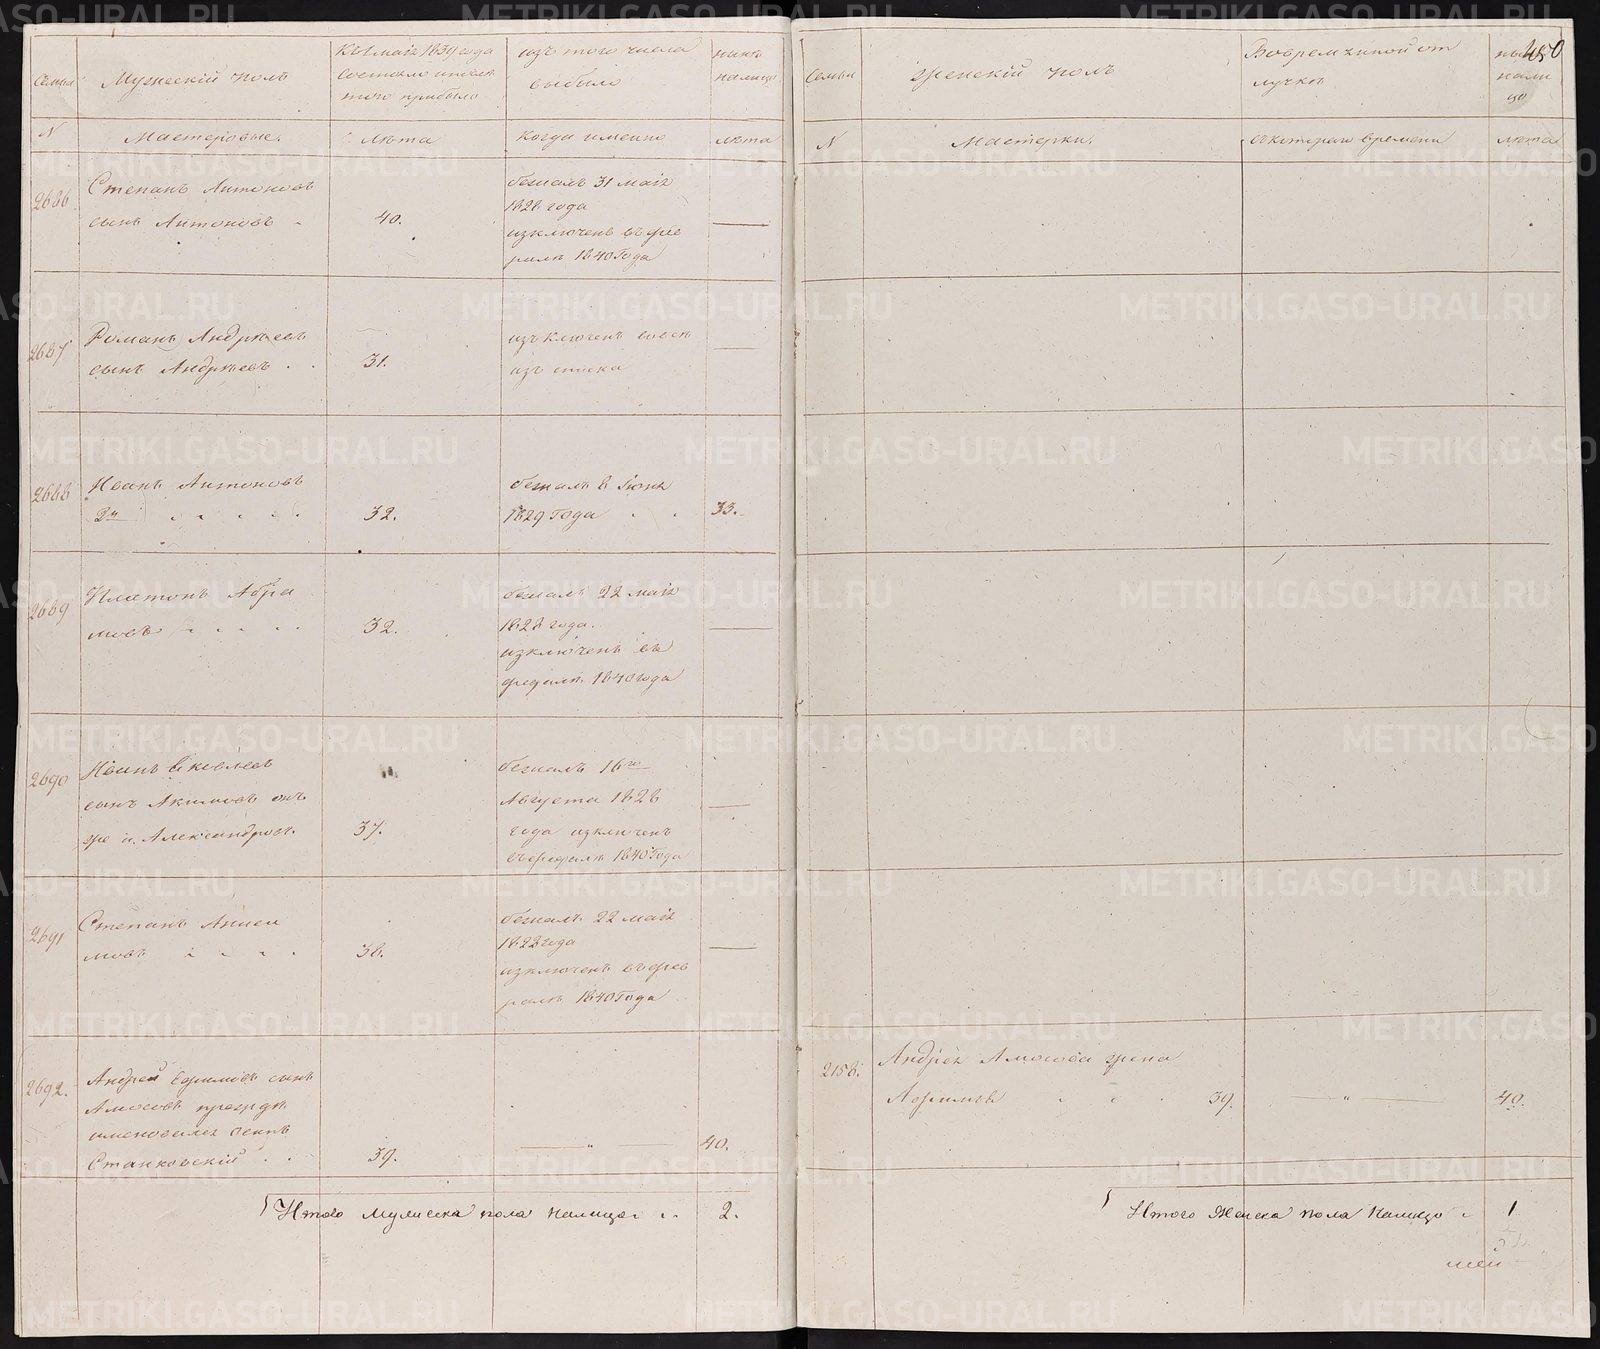 Семьи
Мужескій полъ
Къ 1 мая 1839 года
состояло и после
того прибыло
изъ того числа
выбыло
ныне
налицо
N
Мастеровые.
Лѣта
когда именно
лѣта
2686
Степанъ Антоновъ
сынъ Антоновъ
40.
бежалъ 31 мая
1828 года
изключенъ въ фев
ралѣ 1840 Года
2687
Романъ Андрѣевъ
сынъ Андрѣевъ . .
31.
изключенъ вовсе
изъ списка
2688
Иванъ Антоновъ
2й
32.
бежалъ в Іюнѣ
1829 Года . .
33.
2689
Платонъ Абра
мовъ
32.
бежалъ 22 мая
1828 года.
изключенъ въ
февралѣ 1840 года
2690
Иванъ
сынъ Акимовъ онъ
же и Александровъ.
37.
бежалъ 16го
Августа 1828
года изключенъ
въ февралѣ 1840 Года
2691
Степанъ Аниси
мовъ
38.
бежалъ 22 мая
1828 года
изключенъ въ фев
ралѣ 1840 Года
2692.
Андрей Ефимовъ сынъ
Амосовъ прежде
именовался
Станковскій . .
39.
"
40.
Итого Мужеска пола Налицо
2.
450
Семьи
Женскій полъ
Вовременной от
лучкѣ
ныне
нали
цо
N
Мастерки.
съ котораго времени
лѣта
2158.
Андрея Амосова жена
39.
"
40.
Итого Женска пола Налицо
1